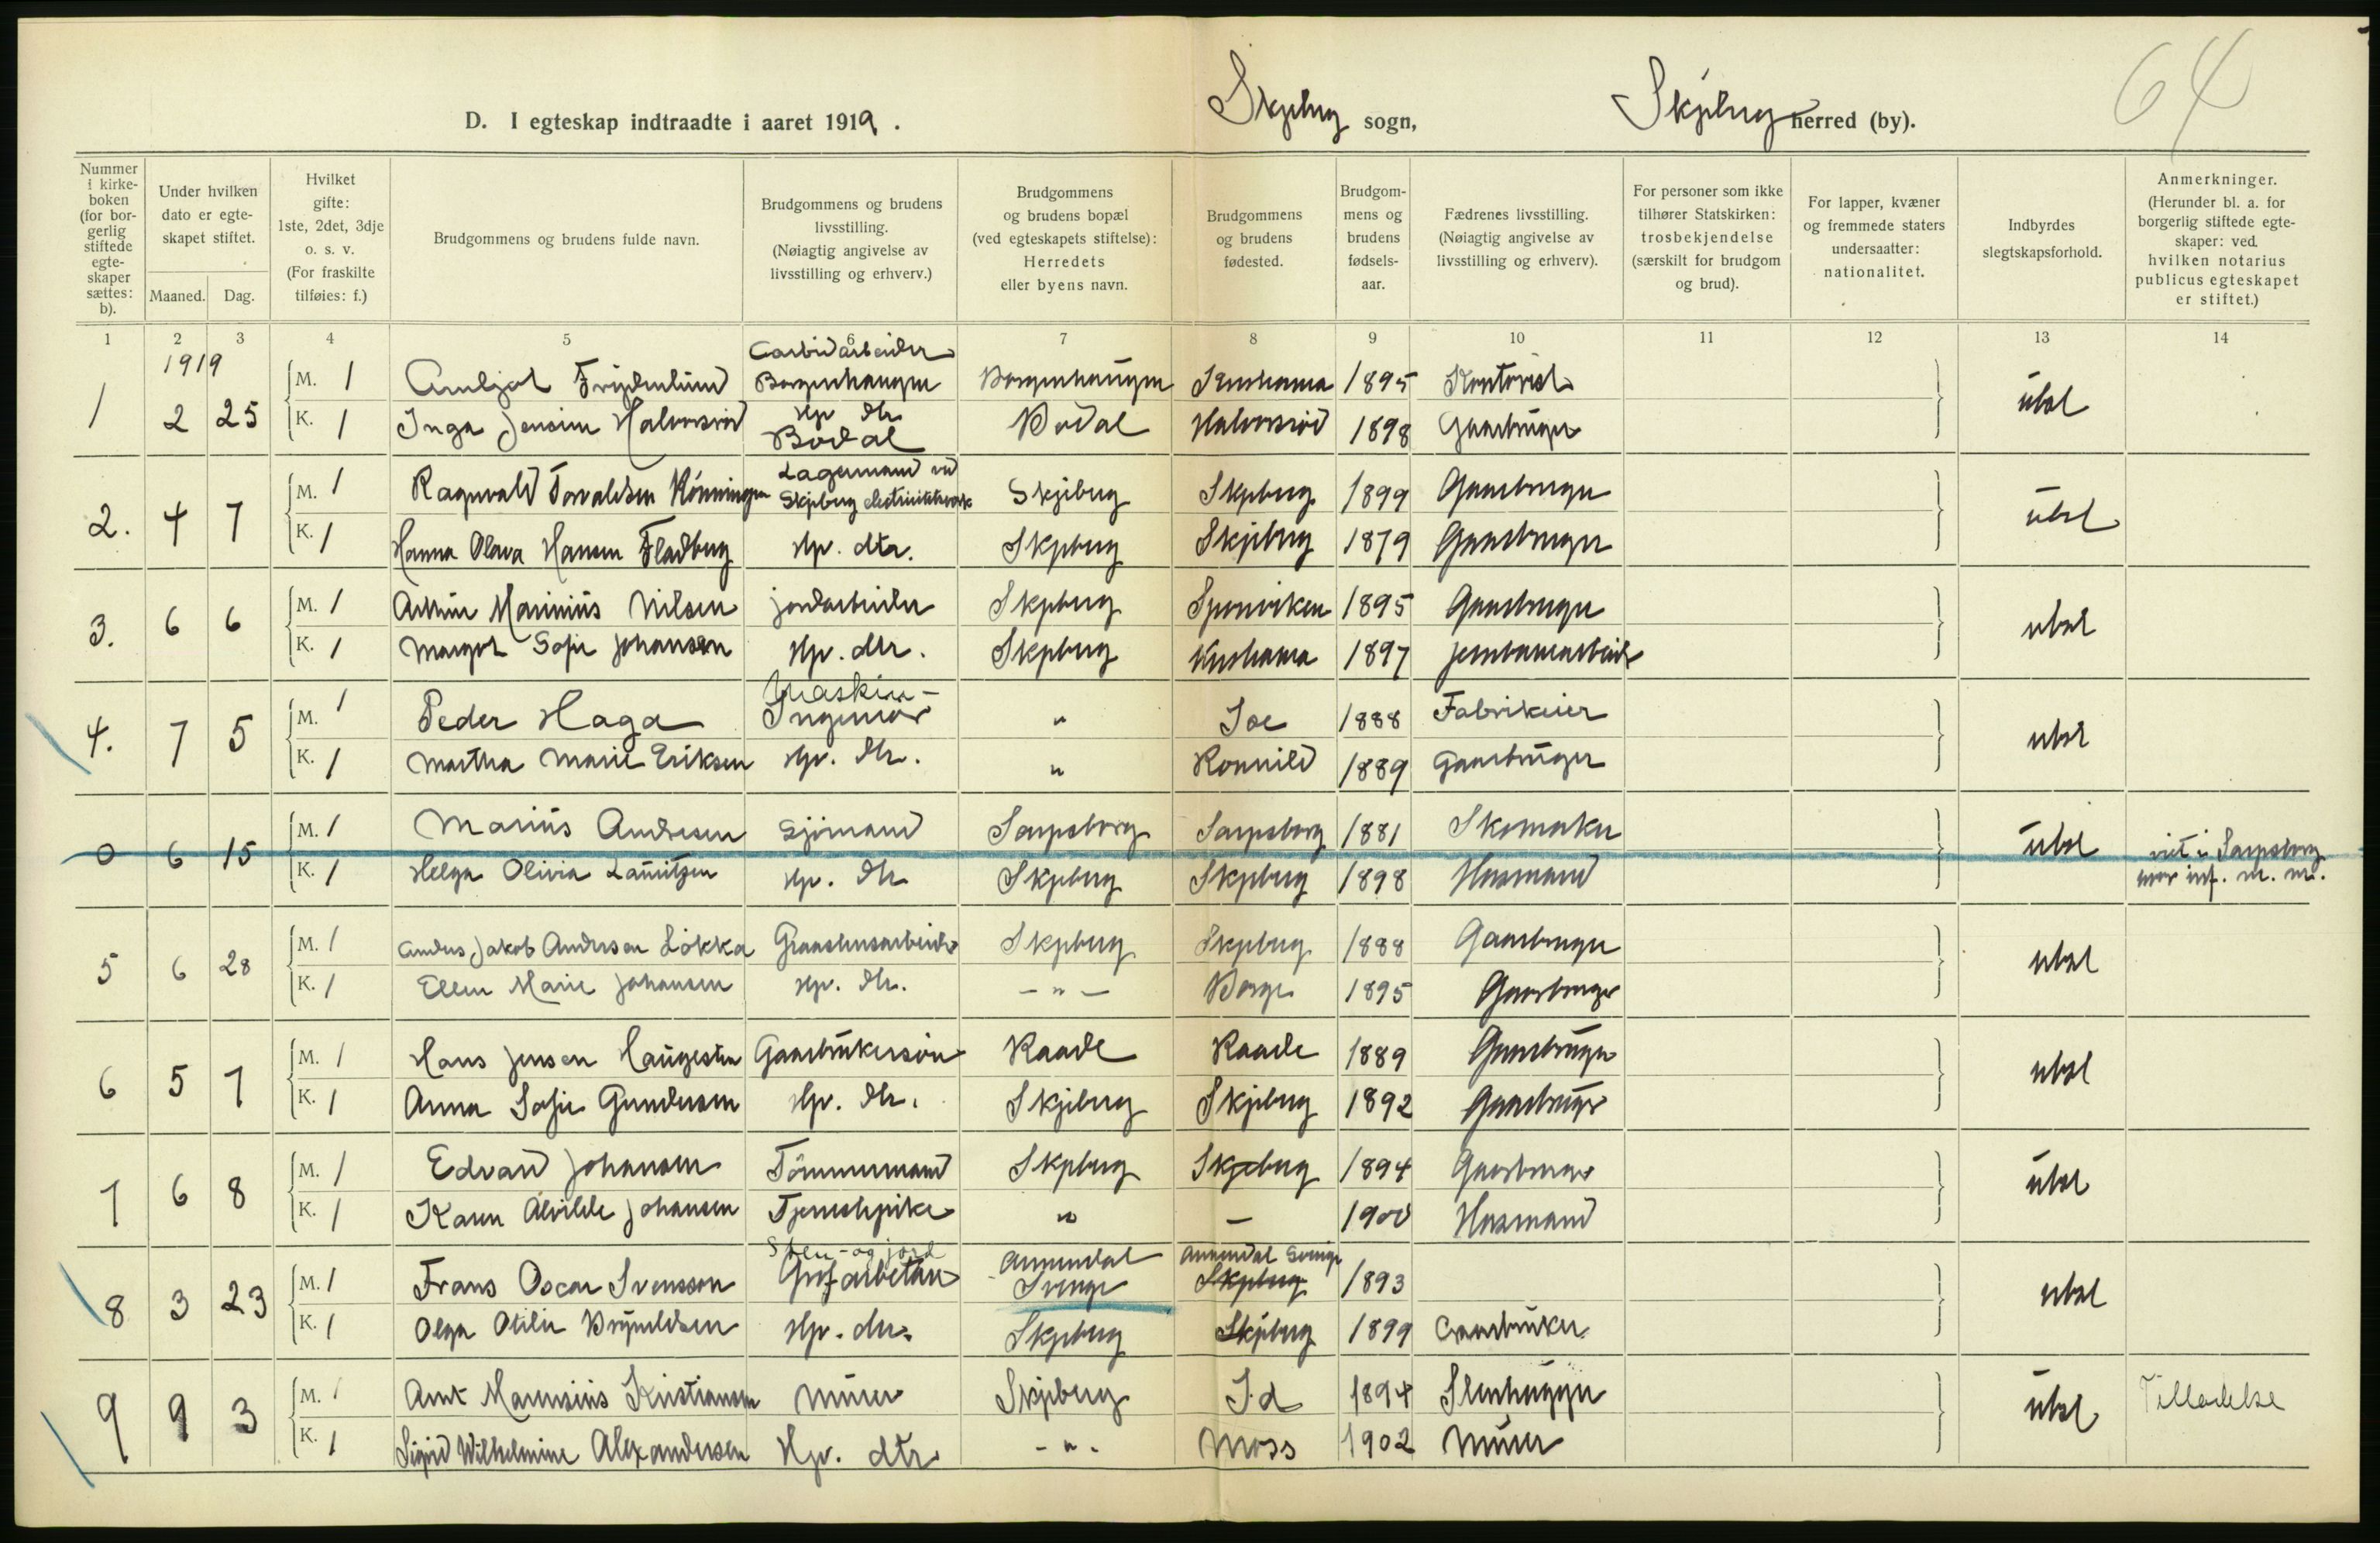 64
D. I egteskap indtraadte i aaret 1919. Skjeberg sogn, Skjeberg herred (by).
Nummer i kirkeboken (for borgerlig stiftede egteskaper sættes: b).
Under hvilken dato er egteskapet stiftet.
Maaned. Dag.
Hvilket gifte: 1ste, 2det, 3dje o. s. v. (For fraskilte tilføies: f.)
Brudgommens og brudens fulde navn.
Brudgommens og brudens livsstilling. (Nøiagtig angivelse av livsstilling og erhverv.)
Brudgommens og brudens bopæl (ved egteskapets stiftelse): Herredets eller byens navn.
Brudgommens og brudens fødested.
Brudgommens og brudens fødselsaar.
Fædrenes livsstilling. (Nøiagtig angivelse av livsstilling og erhverv).
For personer som ikke tilhører Statskirken: trosbekjendelse (særskilt for brudgom og brud).
For lapper, kvæner og fremmede staters undersaatter: nationalitet.
Indbyrdes slegtskapsforhold.
Anmerkninger. (Herunder bl. a. for borgerlig stiftede egteskaper: ved. hvilken notarius publicus egteskapet er stiftet.)
1 2 3 4 5 6 7 8 9 10 11 12 13 14
1919
Carbidarbeider
M. 1 Borgenhaugen Borgenhaugen 1895 Kontorist
1 2 25 ubsl
K. 1 Inga Jensine Halvorsrød Hp. dtr. Bodal Bodal Halvorsrød 1898 Gaardbruger
Lagermand ved
M. 1 Ragnvald Torvaldsen Rønningen Skjeberg electricitetsverk Skjeberg Skjeberg 1899 Gaardbruger
2. 4 7 ubsl
K. 1 Hanna Olava Hansen Fladberg Hp. dtr. Skjeberg Skjeberg 1879 Gaardbruger
M. 1 Arthur Marinius Nilsen jordarbeider Skjeberg Sponviken 1895 Gaardbruger
3. 6 6 ubsl
K. 1 Margot Sofie Johansen Hp. dtr. Skjeberg 1897 jernbanearbeider
Maskin-
M. 1 Peder Haga Ingeniør " 1888 Fabrikeier
4. 7 5 ubsl
K. 1 Martha Marie Eriksen Hp. dtr. " 1889 Gaardbruger
M. 1 Marius Andresen Sjømand Sarpsborg Sarpsborg 1881 Skomaker
0 6 15 ubsl viet i Sarpsborg
K. 1 Helga Olivia Lauritzen Hp. dtr. Skjeberg Skjeberg 1898 Husmand
M. 1 Anders Jakob Andersen Løkka Skjeberg Skjeberg 1888 Gaardbruger
5 6 28 ubsl
K. 1 Ellen Marie Johansen Hp. dtr. - " - Borge 1895 Gaardbruger
M. 1 Hans Jensen Haugesten Gaardbrukersøn Raade Raade 1889 Gaardbruger
6 5 7 ubsl
K. 1 Anna Sofie Gundersen Hp. dtr. Skjeberg Skjeberg 1892 Gaardbruger
M. 1 Edvard Johansen Tømmermand Skjeberg Skjeberg 1894 Gaardbruger
7 6 8 ubsl
K. 1 Karen Alvilde Johansen Tjenestepike " - 1900 Husmand
Sten- og jord
M. 1 Frans Oscar Svensson Grofarbetare Annendal Sverige Annendal Sverige Skjeberg 1893
8 3 23 ubsl
K. 1 Olga Otilie Brynildsen Hp. dtr. Skjeberg Skjeberg 1899 Gaardbruker
M. 1 Arnt Marensius Kristiansen Murer Skjeberg Id 1894 Stenhugger
9 9 3 ubsl Tilladelse
K. 1 Sigrid Wilhelmine Alexandersen Hp. dtr. - " - Moss 1902 Murer